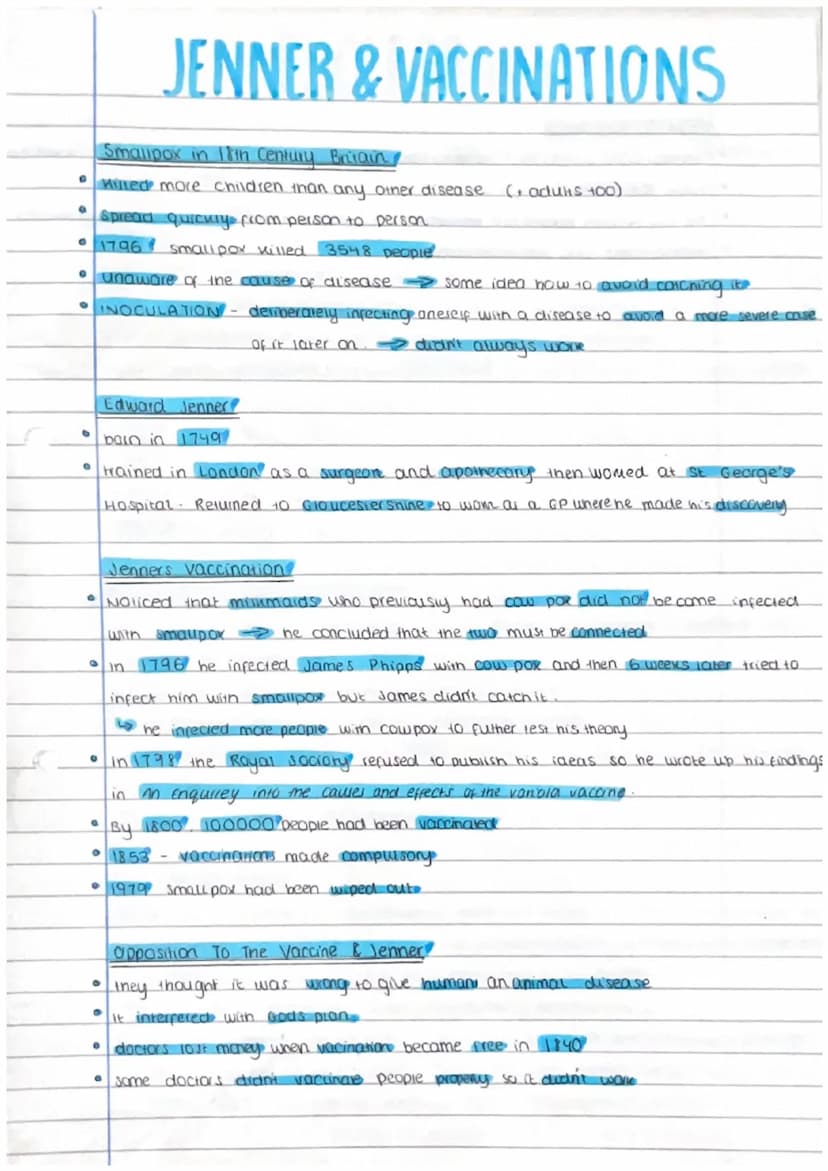 JENNER & VACCINATIONS
Smallpox in 18th Century Britain
• Killed more children than any other disease (+ adults too)
• Spread quickly from person to person
• 1796 smallpox killed 3548 people
• unaware of the cause of disease → some idea how to avoid catching it
• INOCULATION - deliberately infecting oneself with a disease to avoid a more severe case
of it later on. → didn't always work
Edward Jenner
• born in 1749
• trained in London as a surgeon and apothecary then worked at St George's
Hospital. Returned to Gloucestershire to work as a GP where he made his discovery
Jenners vaccination
• Noticed that milkmaids who previously had cow pox did not become infected
with smallpox → he concluded that the two must be connected
• In 1796 he infected James Phipps with cow pox and then 6 weeks later tried to
infect him with smallpox but James didn't catch it.
↳ he infected more people with cowpox to futher test his theory
• in 1798 the Royal Society refused to publish his ideas so he wrote up his findings
in An Enquirey into the causes and effects of the variola vaccine.
• By 1800, 100000 people had been vaccinated
• 1853 - vaccinations made compulsory
• 1979 smallpox had been wiped out
Opposition To The Vaccine & Jenner
• they thought it was wrong to give humans an animal disease
• It interfered with Gods plan
• doctors lost money when vacination became free in 1840
• some doctors didn't vaccinate people properly so it didn't work